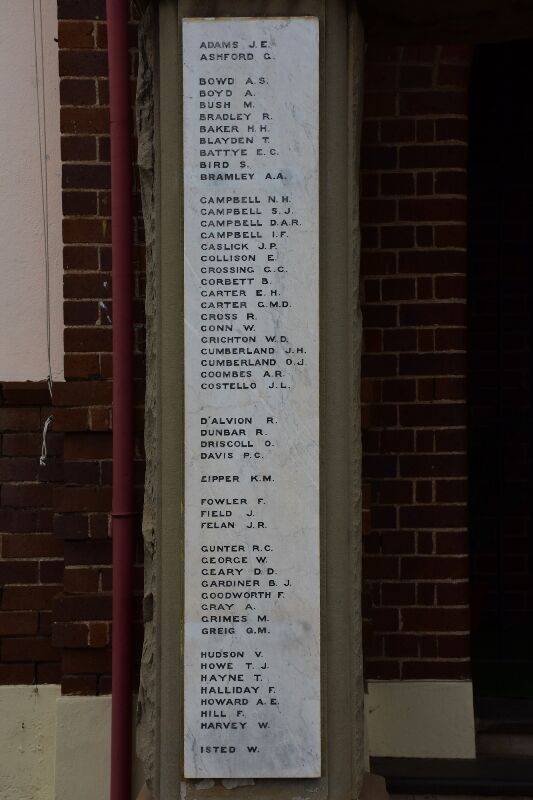 ADAMS J.E.
ASHFORD G.
BOWD A.S.
BOYD A.
BUSH M.
BRADLEY R.
BAKER H.H.
BLAYDEN T.
BATTYE E.C.
BIRD S.
BRAMLEY A.A.
CAMPBELL N.H.
CAMPBELL S.J.
CAMPBELL D.A.R.
CAMPBELL I.F.
CASLICK J.P.
COLLISON E.
CROSSING G.C.
CORBETT B.
CARTER E.H.
CARTER G.M.D.
CROSS R.
CONN W.
CRICHTON W.D.
CUMBERLAND J.H.
CUMBERLAND O.J.
COOMBES A.R.
COSTELLO J.L.
D'ALVION R.
DUNBAR R.
DRISCOLL O.
DAVIS P.C.
EIPPER K.M.
FOWLER F.
FIELD J.
FELAN J.R.
GUNTER R.C.
GEORGE W.
GEARY D.D.
GARDINER B.J.
GOODWORTH F.
GRAY A.
GRIMES M.
GREIG G.M.
HUDSON V.
HOWE T.J.
HAYNE T.
HALLIDAY F.
HOWARD A.E.
HILL F.
HARVEY W.
ISTED W.